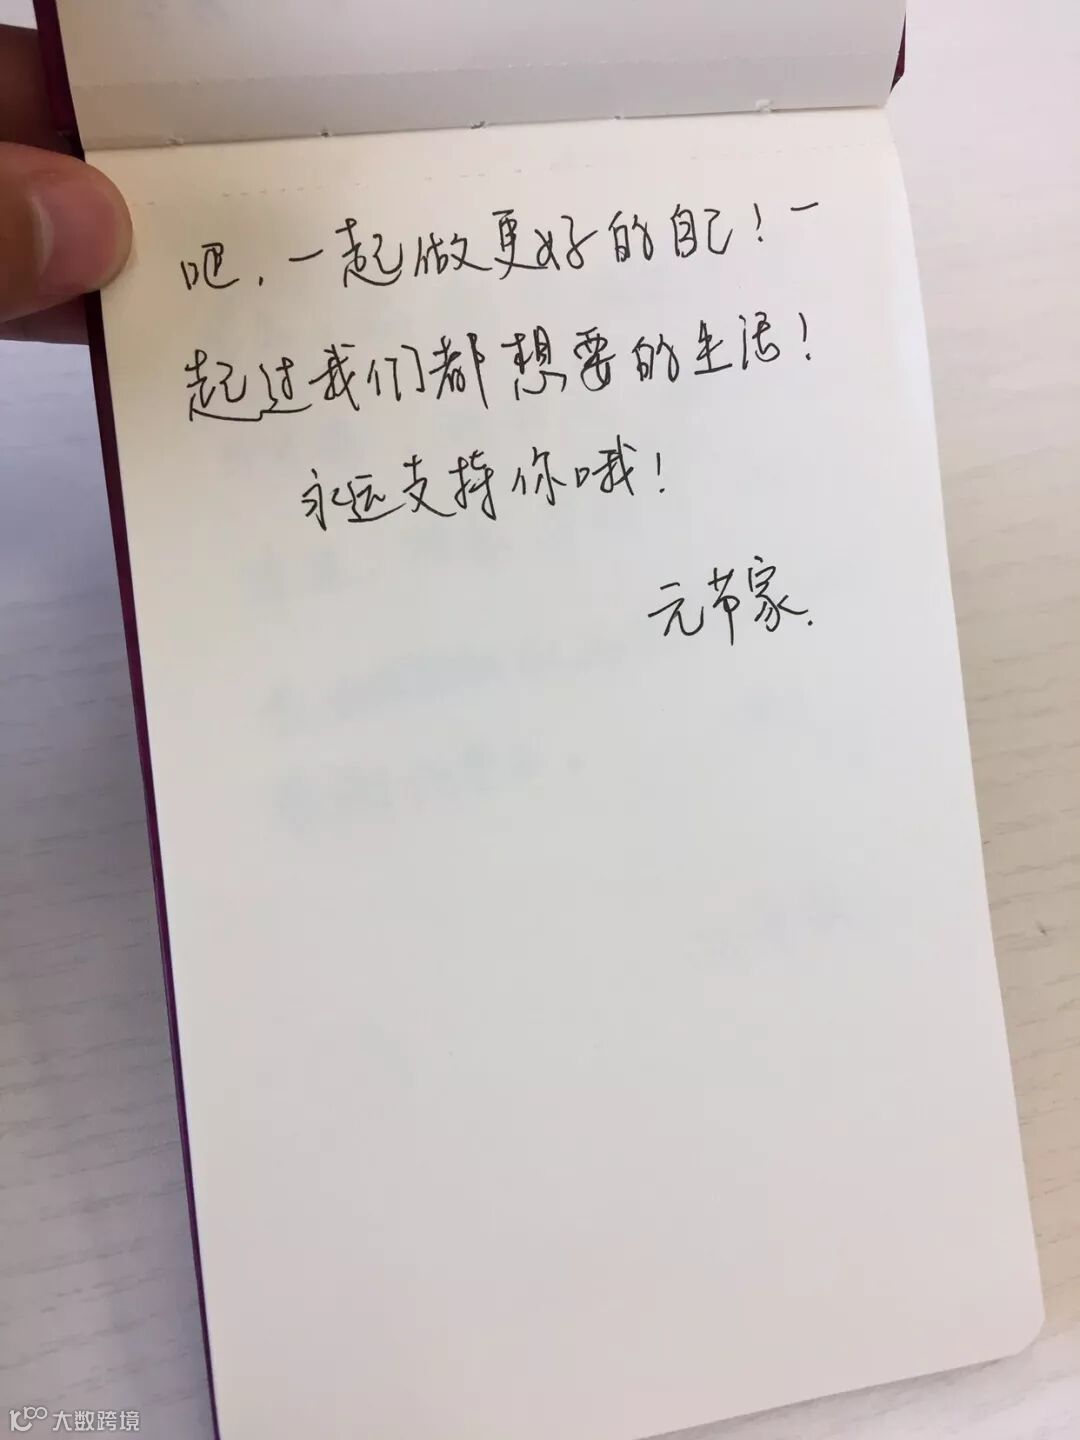 吧，一起做更好的自己！一
起过我们都想要的生活！
永远支持你哦！
元节家.
大数跨境